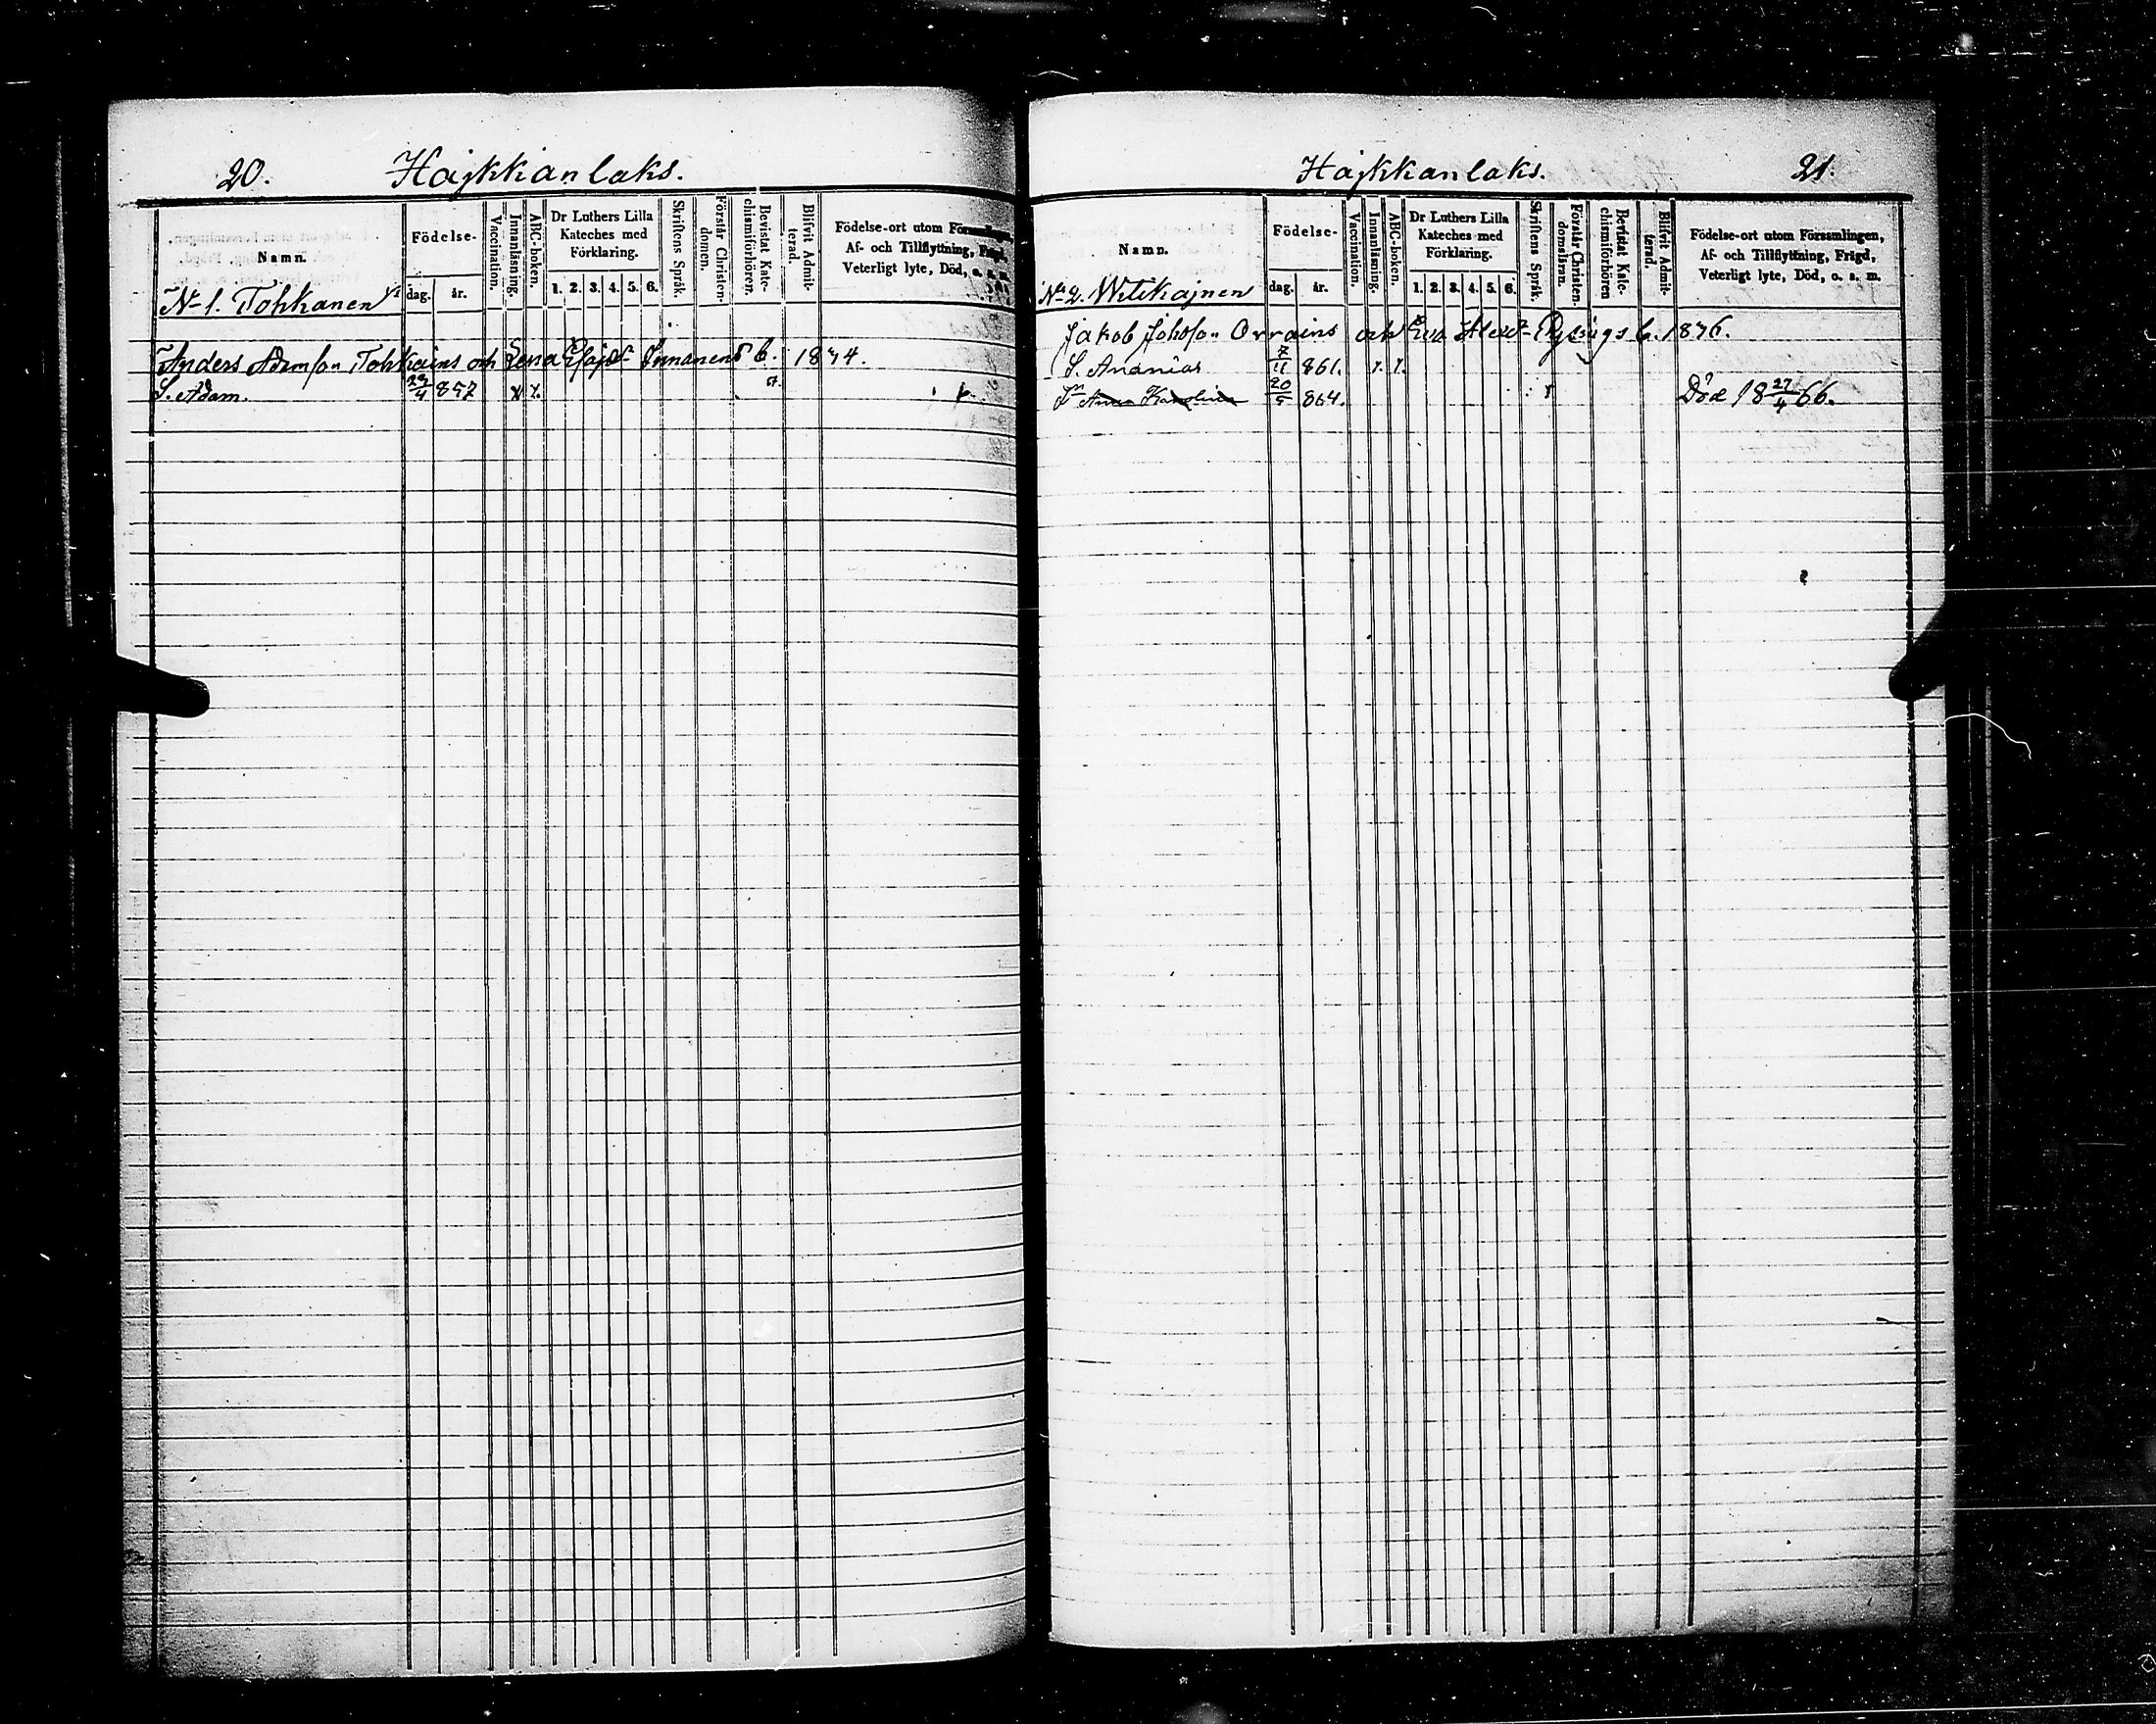 20. Hajkkanlaks.
Namn.
Födelse-
dag. år.
Vaccination.
Innanläsning.
ABC-boken.
Dr Luthers Lilla
Kateches med
Förklaring.
1. 2. 3. 4. 5. 6.
Skriftens Språk.
Förstår Christen-
domen.
Bevistat Kate-
chismiförhören.
Blifvit Admit-
terad.
Födelse-ort utom Församlingen,
Af- och Tillflyttning, Frägd,
Veterligt lyte, Död, o. s. m.
No 1. Tohkanen
Anders Adamson Tohkains och Lena Esajed Innanens b. 1874.
S. Adam. 857
Hajkkanlaks. 21.
Namn.
Födelse-
dag. år.
Vaccination.
Innanläsning.
ABC-boken.
Dr Luthers Lilla
Kateches med
Förklaring.
1. 2. 3. 4. 5. 6.
Skriftens Språk.
Förstår Christen-
domsläran.
Bevistat Kate-
chismiförhören
Blifvit Admit-
terad.
Födelse-ort utom Församlingen,
Af- och Tillflyttning, Frägd,
Veterligt lyte, Död, o. s. m.
No 2. Witikajnen
Jakob Johsson Orrains och Eva b. 1876.
S. Ananias 7/11 861.
Anna Karolina 20/5 864. Död 18 27/4 66.